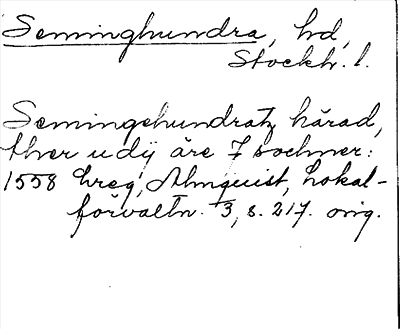 Seminghundra, hd,
Stockh. l.
Semingehundratz härad,
ther udij äre 7 sochner:
1558 Greg, Almquist, Lokal-
förvaltn. 3, s. 217. orig.